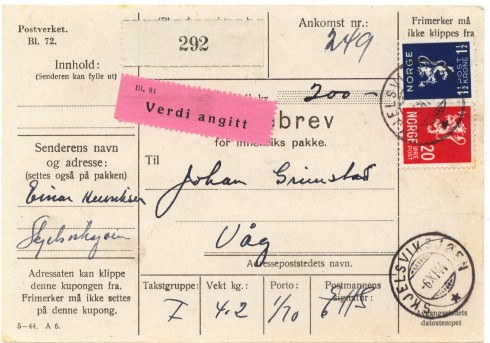 Postverket.
Bl. 72.
292
Ankomst nr.:
249
Frimerker må
ikke klippes fra
Innhold:
(Senderen kan fylle ut)
Bl. 91
Verdi angitt
kr.
200-
NORGE
1½ POST KRONE 1½
NORGE
20 ØRE POST
ebrev
for innenriks pakke.
Senderens navn
og adresse:
(settes også på pakken)
Einar Henriksen
Til
Johan Grimstad
Våg
Adressepoststedets navn.
SKJELSVIKSJØEN
Adressaten kan klippe
denne kupongen fra.
Frimerker må ikke settes
på denne kupong.
5-44. A 6.
Takstgruppe:
I
Vekt kg.:
4.2
Porto:
1/70
Postmannens
signatur:
datostempel